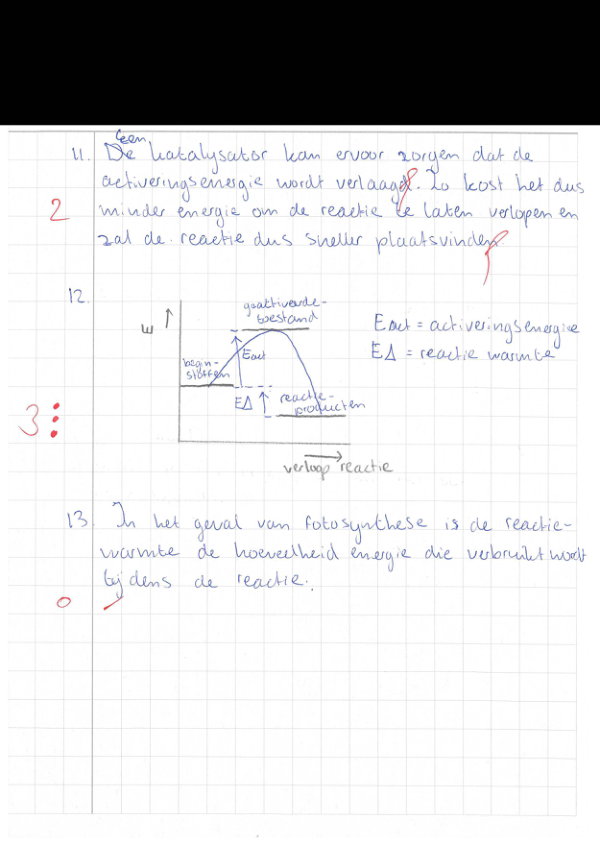 een
11. De katalysator kan ervoor zorgen dat de
activeringsenergie wordt verlaagd. Zo kost het dus
2 minder energie om de reactie te laten verlopen en
zal de reactie dus sneller plaatsvinden
12.
E ↑
geactiveerde-
toestand
Eact = activeringsenergie
EΔ = reactie warmte
Eact
begin-
stoffen
EΔ ↑ reactie-
producten
3
verloop reactie
13. In het geval van fotosynthese is de reactie-
warmte de hoeveelheid energie die verbruikt wordt
tijdens de reactie.
0